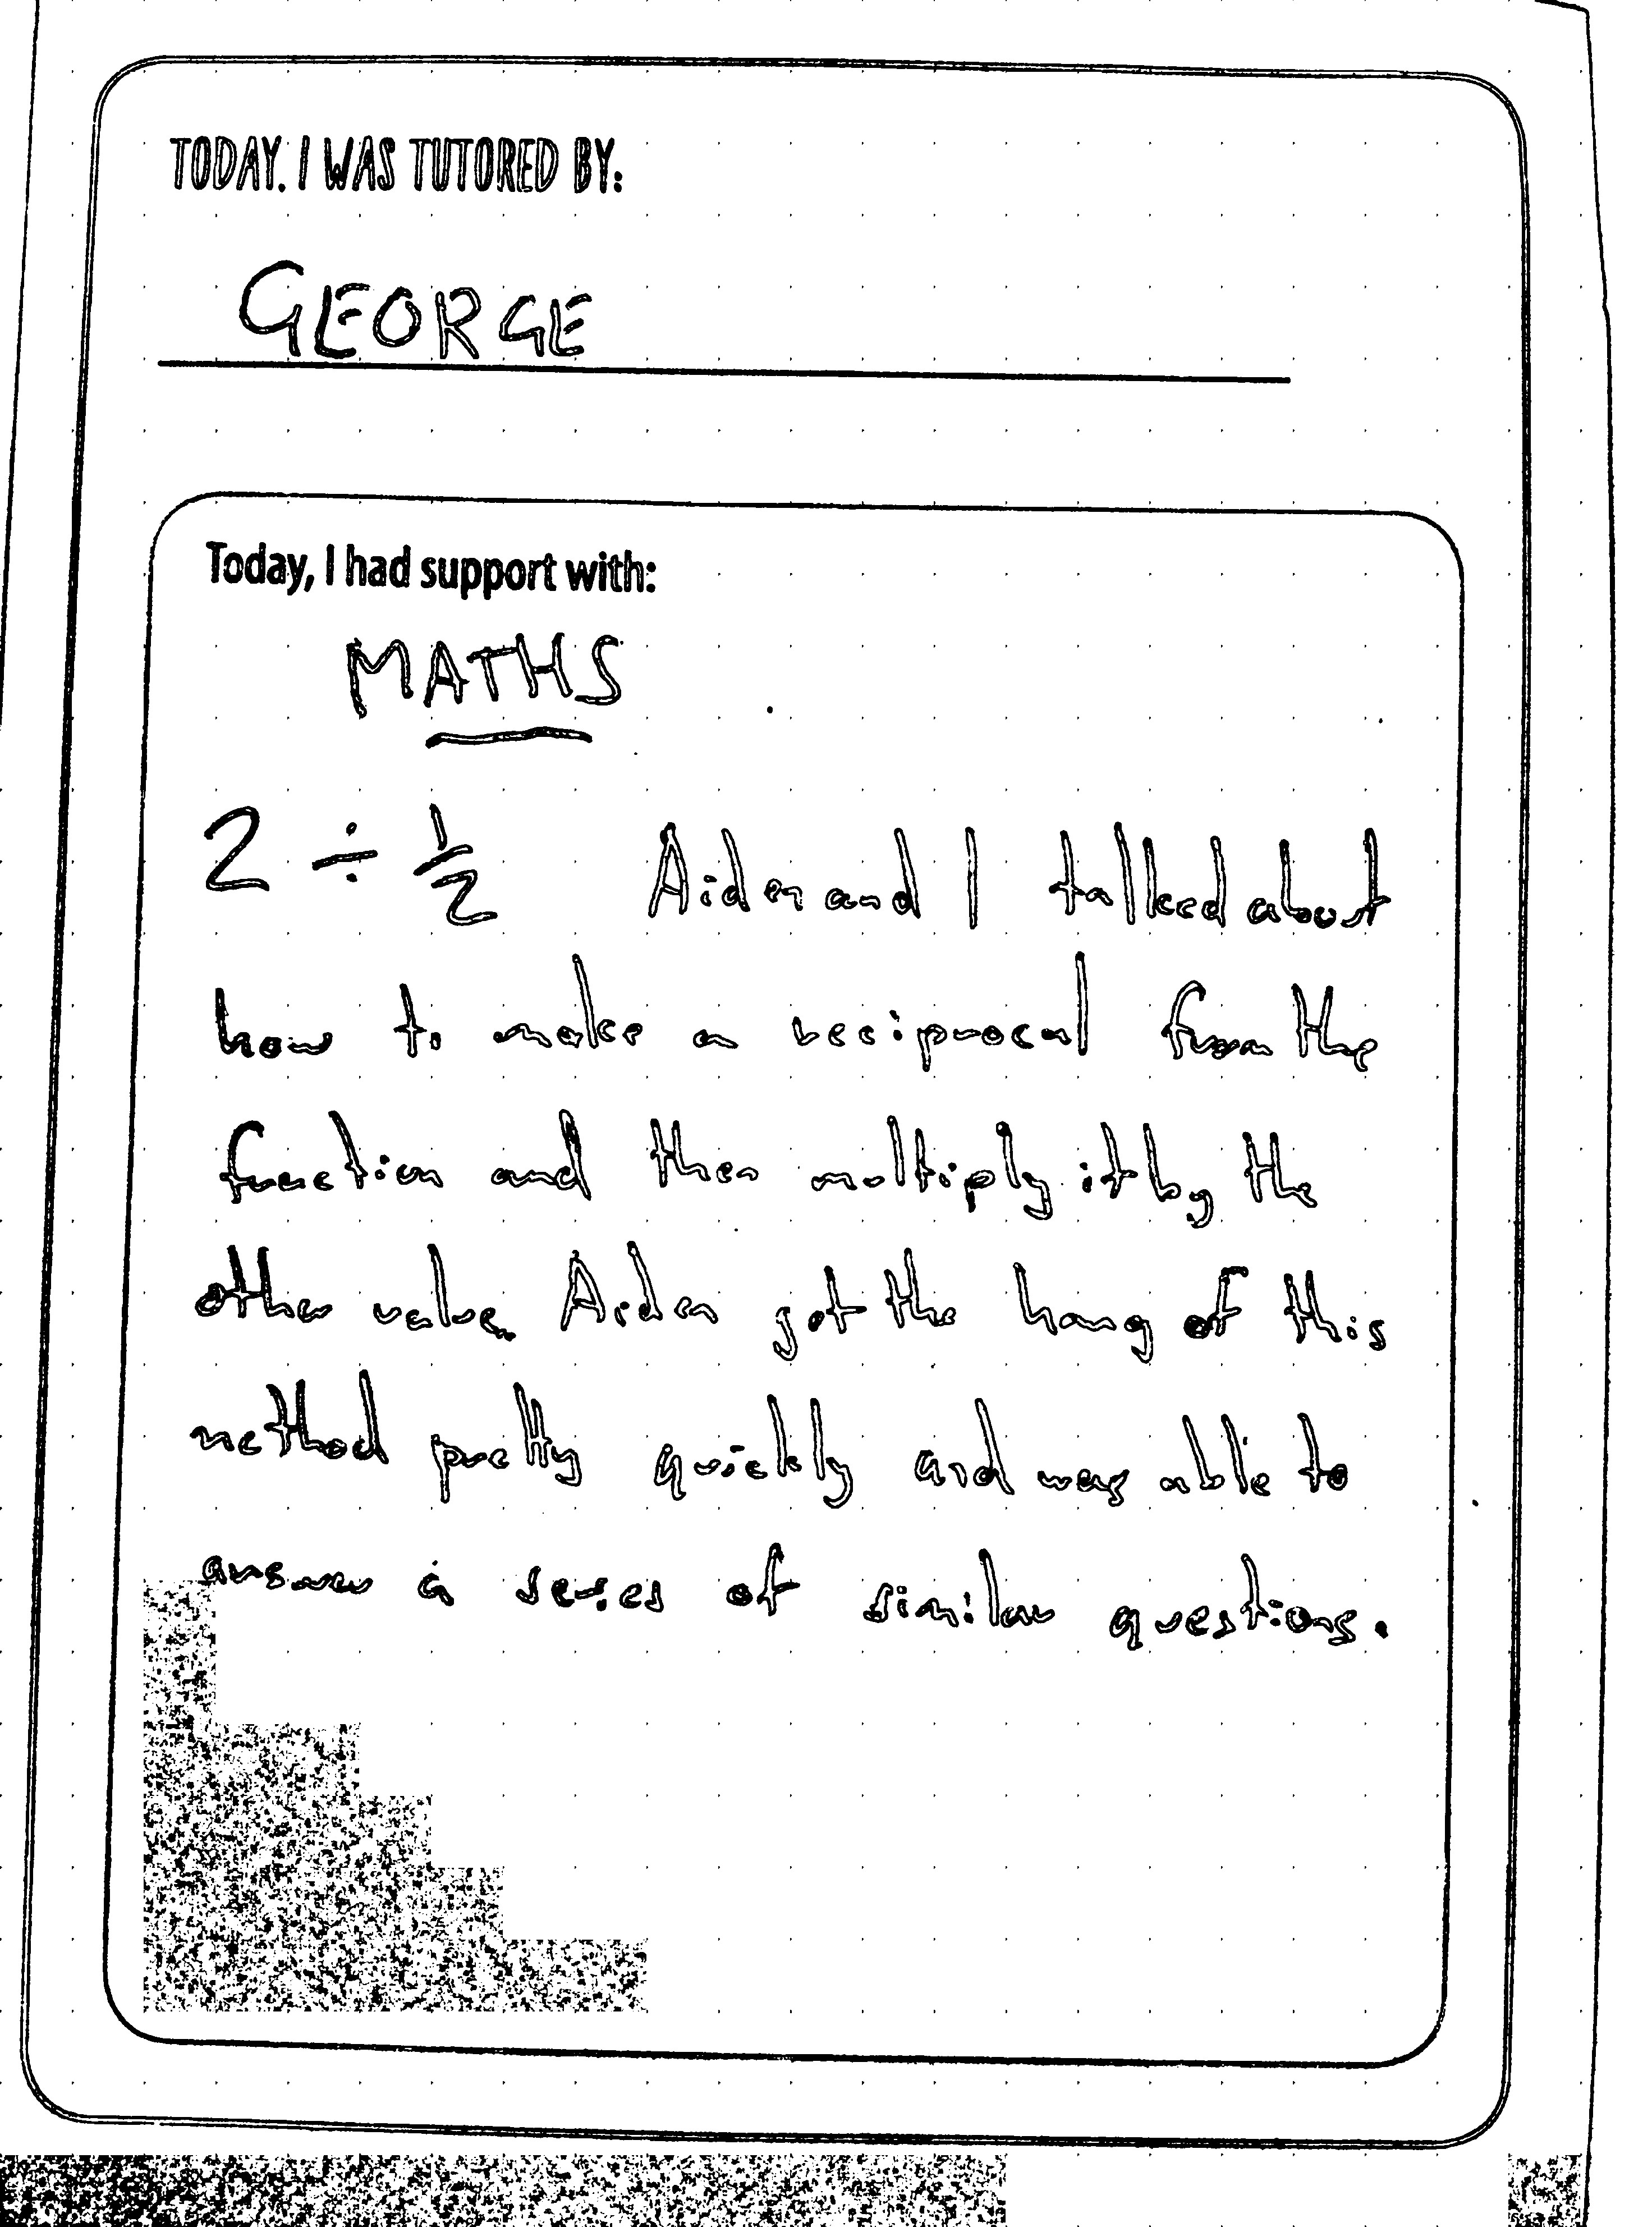 TODAY, I WAS TUTORED BY:
GEORGE
Today, I had support with:
MATHS
2 ÷ 1/2 Aiden and I talked about
how to make a reciprocal from the
fraction and then multiply it by the
other value. Aiden got the hang of this
method pretty quickly and was able to
answer a series of similar questions.